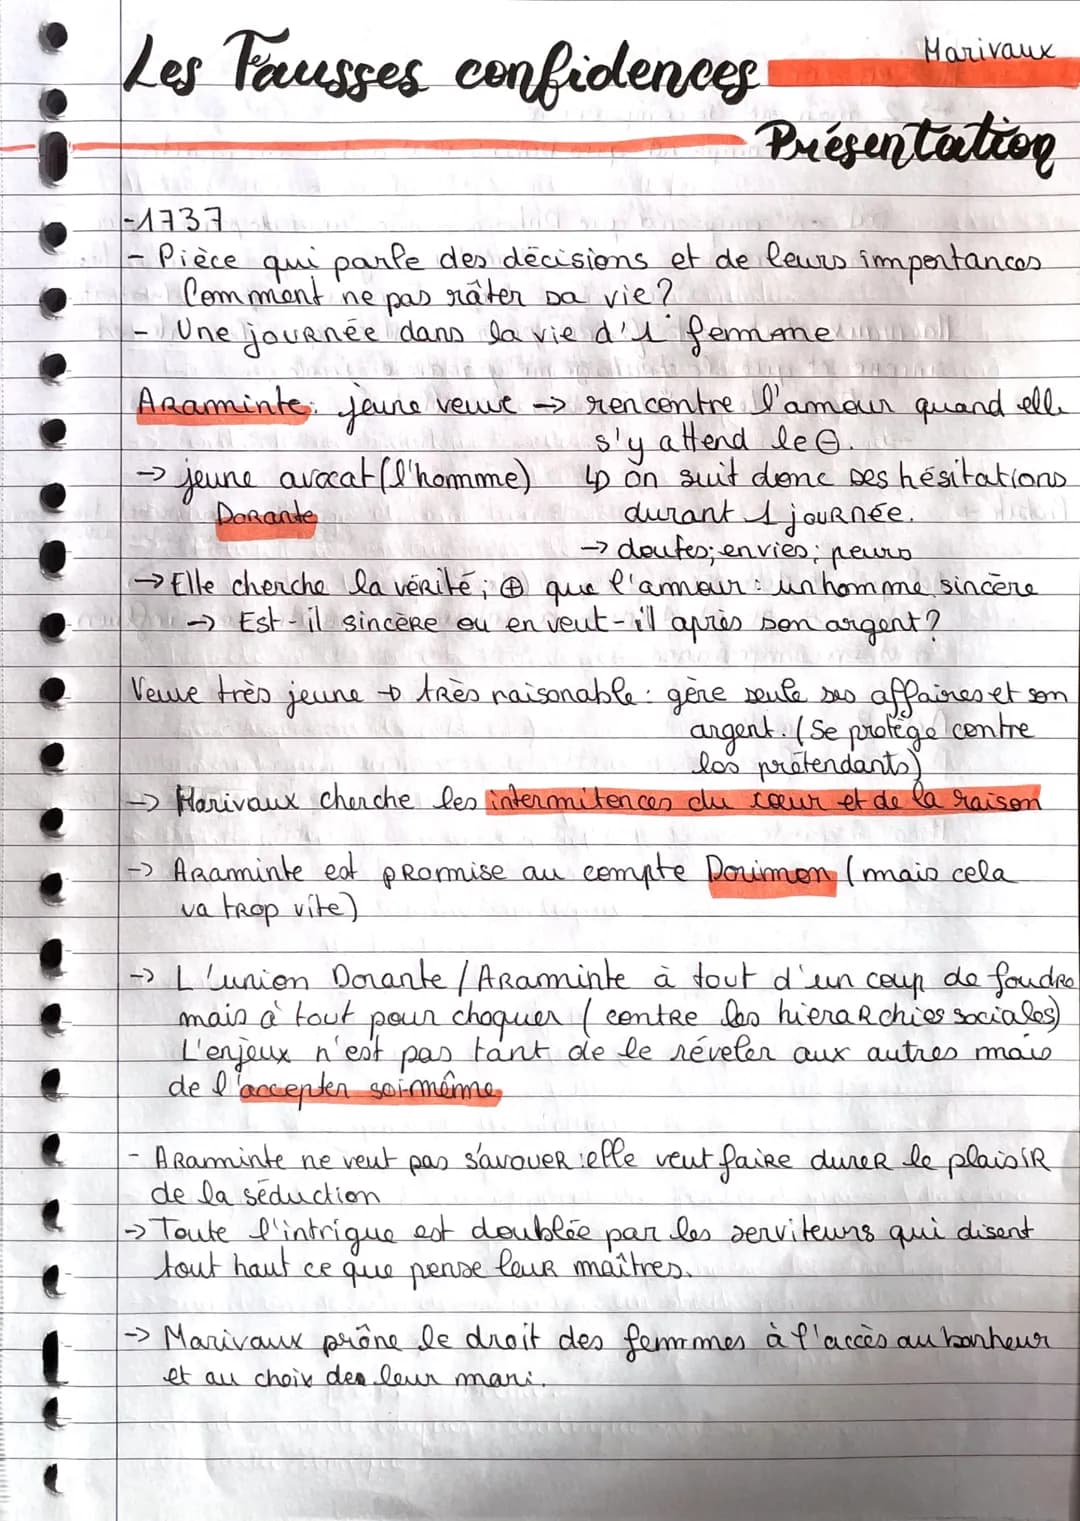 Les Fausses confidences
Marivaux
Présentation
-1737
- Pièce qui parle des décisions et de leurs importances
Comment ne pas râter sa vie?
- Une journée dans la vie d'1 femme
Araminte: jeune veuve → rencontre l'amour quand elle
s'y attend le ⊖.
→ jeune avocat (l'homme) ↳ on suit donc ses hésitations
Dorante durant 1 journée.
→ doutes; envies; peurs
→ Elle cherche la vérité; ⊕ que l'amour: un homme sincère
→ Est-il sincère ou en veut-il après son argent?
Veuve très jeune → très raisonable: gère seule ses affaires et son
argent. (Se protège contre
les prétendants)
→ Marivaux cherche les intermitences du cœur et de la raison
→ Araminte est promise au compte Dorimon (mais cela
va trop vite)
→ L'union Dorante/Araminte à tout d'un coup de foudre
mais à tout pour choquer (contre les hierarchies sociales)
L'enjeux n'est pas tant de le réveler aux autres mais
de l'accepter soi-même.
- Araminte ne veut pas s'avouer: elle veut faire durer le plaisir
de la séduction
→ Toute l'intrigue est doublée par les serviteurs qui disent
tout haut ce que pense leur maîtres.
→ Marivaux prône le droit des femmes à l'accès au bonheur
et au choix des leur mari.